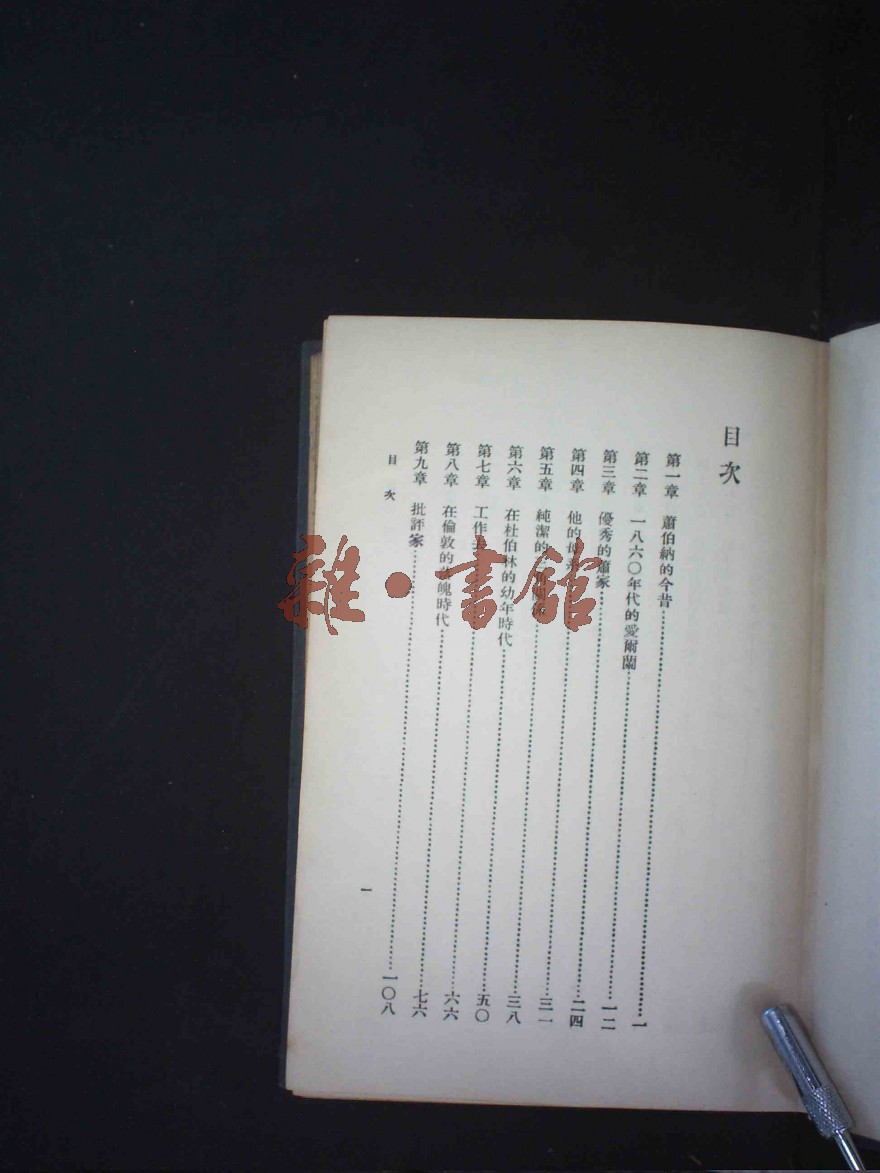 目次
第一章 蕭伯納的今昔……一
第二章 一八六〇年代的愛爾蘭……一二
第三章 優秀的蕭家……二四
第四章 他的母……三一
第五章 純潔的……三八
第六章 在杜伯林的幼年時代……五〇
第七章 工作……六六
第八章 在倫敦的魄時代……七六
第九章 批評家……一〇八
目次
一
雜·書館